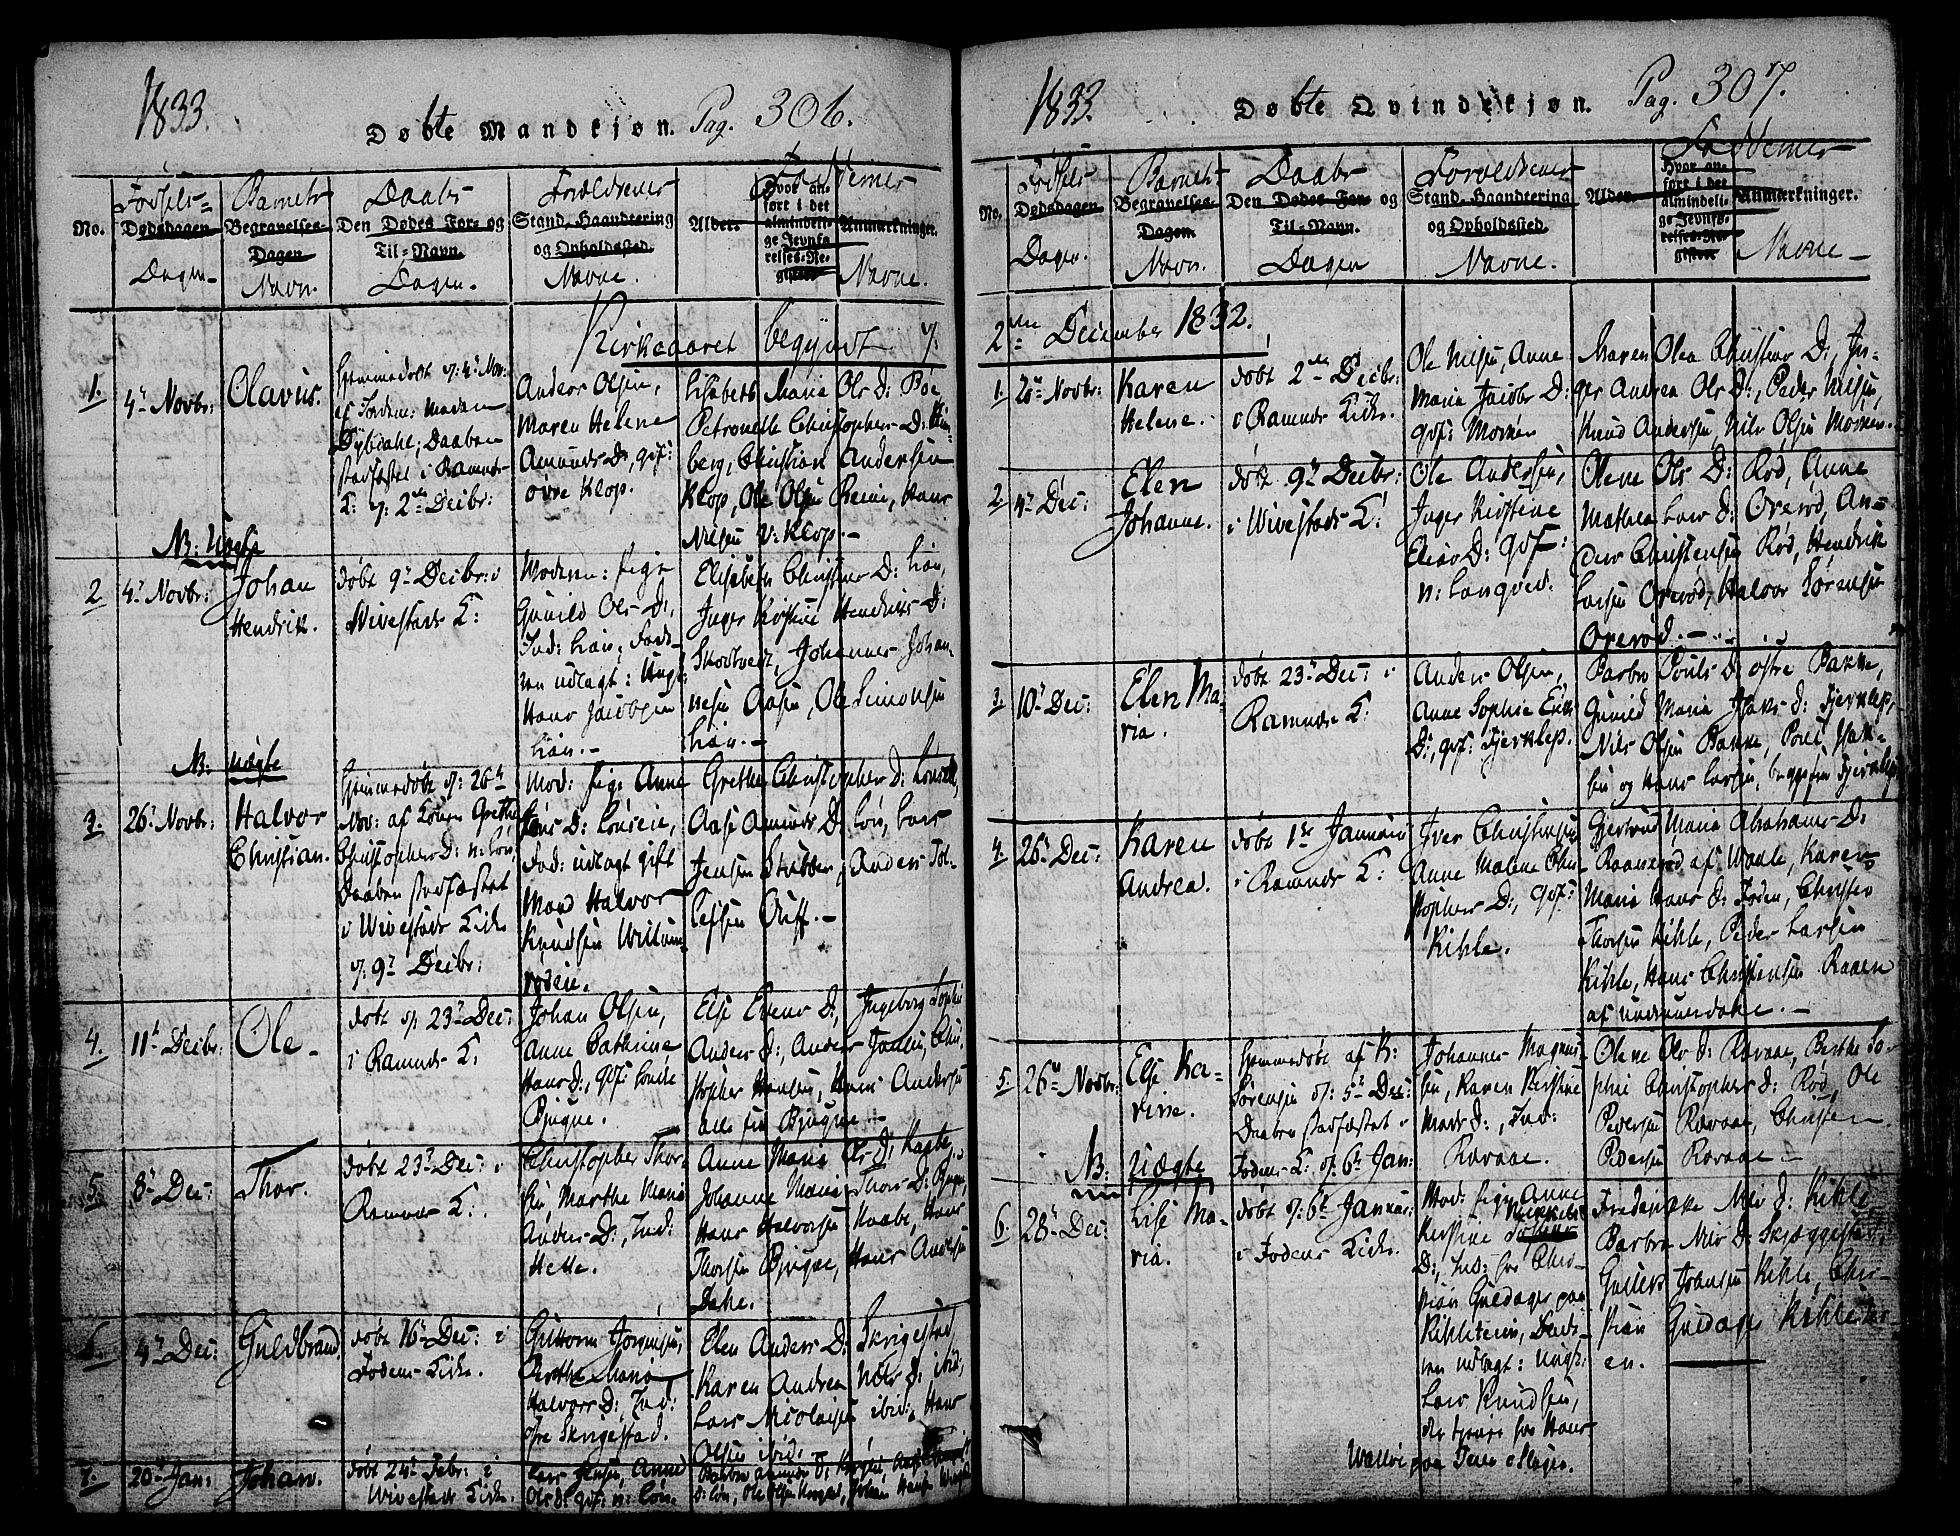 1833.
Døbte Mandkjøn. Pag. 306.
No.
Fødsels=
Dødsdagen
Dagen
Barnets
Begravelses-
Dagen
Navn.
Daabs
Den Dødes For- og
Til-Navn.
Dagen.
Forældrenes
Stand, Haandtering
og Opholdssted.
Navne.
Alder.
Faddernes
Hvor an-
ført i det
almindeli-
ge Jevnfø-
relses-Re-
gister
Anmærkninger.
Navne.
Kirkeaaret begyndt d:
1.
4de Novbr:
Olavus.
Hjemmedøbt d: 4de Nov:
af Jordem: Madam
Dybdahl; Daaben
stadfæstet i Ramnes
K: d: 2den Decbr:
Anders Olsen,
Maren Helene
Amunds D., gdf:
øvre Klop.
Lisabeth Maria Ols D:
Petronelle Christophers D:
berg, Christian Andersen
Klop, Ole Olsen Reine, Hans
Nielsen v: Klop.
NB: Uægte
2
4de Novbr:
Johan
Hendrik.
døbt 9de Decbr: i
Wivestads K:
Moderen: pige
Gunild Ols D:,
Ind: Liøn, Fade-
ren udlagt: Ungk:
Hans Jacobsen
Liøn.
Elisabeth Christens D: Liøn,
Inger Kirstine Hendriks D:
Skodtvedt, Johannes Johan-
nesen Aasen, Ole Simonsen
Liøn.
NB: uægte
3.
26de Novbr:
Halvor
Christian.
Hjemmedøbt d: 26de
Nov: af Kønen Grethe
Christophers D: n: Løn,
Daaben stadfæstet
i Wivestads Kirke
d: 9de Decbr:
Mod: pige Anne
Lars D:
Fad: udlagt gift
Mand Halvor
Knudsen Willum-
rødeie.
Grethe Christophers D:
Aase Amunds D: Løn, Lars
Jensen Stubben, Anders Tol-
lefsen Ouff.
4.
11te Decbr:
Ole
døbt d: 23de Dec:
i Ramnes K:
Johan Olsen,
Anne Cathrine
Hans D:, gdf:
Bjugne.
Else Evens D:, Ingeborg Sophie
Anders D:, Anders Jonsen, Chri-
stopher Hansen, Hans Andersen
alle fra Bjugne.
5.
8de Dec:
Thor.
døbt 23de Dec: i
Ramnes K:.
Christopher Thor-
sen, Marthe Maria
Anders D:, Ind:
Helle.
Anne Maria Ols D: Kagbe,
Johanne Maria Thors D: Bjugne,
Hans Halvorsen Kaabe, Hans
Thorsen Bjugne, Hans Andersen
Dahe.
6.
4de Dec:
Guldbrand.
døbt 16de Dec: i
Fodens Kirke.
Guttorm Jørgensen,
Berthe Maria
Halvors D:, Ind:
øfre Skrigestad.
Elen Anders D: Skrigestad,
Karen Andrea Nils D: ibid:,
Lars Nicolaisen ibid:, Hans
Olsen ibid:
7.
20de Jan:
Johan.
døbt 24de Febr: i
Wivestads Kirke.
Lars Jensen, Anne
Ols D: gdf: n: Løn.
1833.
Døbte Qvindekjøn. Pag. 307.
No.
Fødsels
Dødsdagen
Dagen.
Barnets
Begravelses-
Dagen.
Navn.
Daabs
Den Dødes For- og
Til-Navn.
Dagen
Forældrenes
Stand, Haandtering
og Opholdssted.
Navne.
Alder.
Faddernes
Hvor an-
ført i det
almindeli-
ge Jevnfø-
relses-Re-
gister
Anmærkninger.
Navne
2den December 1832.
1.
20de Novbr:
Karen
Helene.
døbt 2den Decbr:
i Ramnes Kirke.
Ole Nilsen, Anne
Maria Jacobs D:
gdf: Morken
Maren Olea Christens D:, In-
ger Andrea Ols D:, Peder Nilsen,
Knud Andersen, Nils Olsen Morken.
2.
4de Dec:
Elen
Johanne.
døbt 9de Decbr:
i Wivestads K:
Ole Andersen,
Inger Kirstine
Elias D: gdf:
n: Langved.
Olene Ols D: Rød, Anne
Mathea Lars D: Orerød, An-
ders Christensen Rød, Hendrik
Larsen Orerød, Halvor Sørensen
Orerød.
3.
10de Dec:
Elen Ma-
ria.
døbt 23de Dec: i
Ramnes K:
Anders Olsen,
Anne Sophie Eriks
D:, gdf: Fjerklep.
Barbro Pouls D: østre Bakke,
Gunild Maria Isaks D: Fjerklep,
Nils Olsen Bakke, Poul Isak-
sen og Hans Larsen, begge fra Fjerklep
4.
26de Dec:
Karen
Andrea.
døbt 1ste Januar
i Ramnes K:
Iver Christensen
Anne Malene Chri-
stophers D:, gdf:
Kihle.
Gjertrud Maria Abrahams D:
Raanerød af Waale, Karen
Maria Hans D: Foden, Christen
Thorsen Kihle, Peder Larsen
Kihle, Hans Christensen Raaen
5.
26de Novbr:
Else Ka-
rine.
Hjemmedøbt af K:
Sørensen d: 5te Dec:
Daaben stadfæstet i
Fodens K: d: 6te Jan:
Johannes Magnus-
sen, Karen Kirstine
Mads D:, Ind:
Ravaae.
Olene Ols D: Ravaae, Berthe So-
phie Christophers D: Rød, Ole
Pedersen Ravaae, Christen
Pedersen Ravaae
NB: uægte
6.
28de Dec:
Lise Ma-
ria.
døbt d: 6te Januar:
i Fodens Kirke.
Mod: pige Anne
Kirstine Nickels
D:, Ind: hos Chri-
stian Guldager paa
Kihleteien, Fade-
ren udlagt: Ungk:
Lars Knudsen,
der tjener hos Hans
Wallø paa Teien Slagen.
Frederikke Nils D: Kihle
Barbra Nils D: Skjeggestad,
Gullers Johnsen Kihle, Chri-
stian Guldager Kihletei-
en.